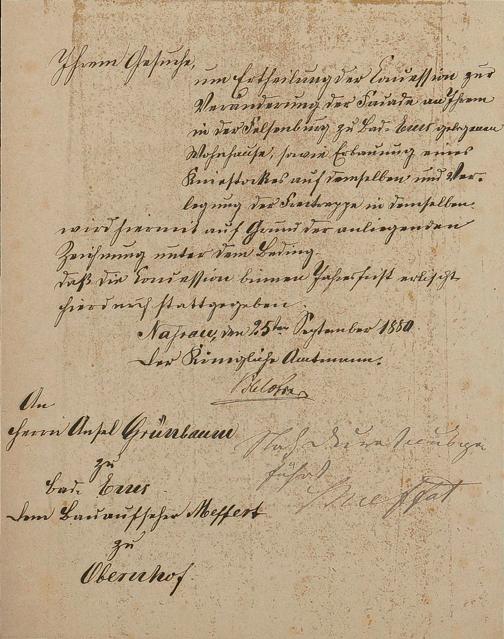 Ihrem Gesuche,
um Ertheilung der Concession zur
Veränderung der Facade an Ihrem
in der Felsenburg zu Bad-Ems gelegenen
Wohnhause, sowie Erbauung eines
Kniestockes auf demselben und Ver-
legung der Freitreppe in demselben
wird hiermit auf Grund der anliegenden
Zeichnung unter dem Beding
daß die Concession binnen Jahresfrist erlischt
hierdurch stattgegeben.
Nassau, den 25ten September 1880
Der Königliche Amtmann.
An
Herrn Ansel Grünbaum
zu
Bad-Ems
dem Bauaufseher Meffert
zu
Obernhof